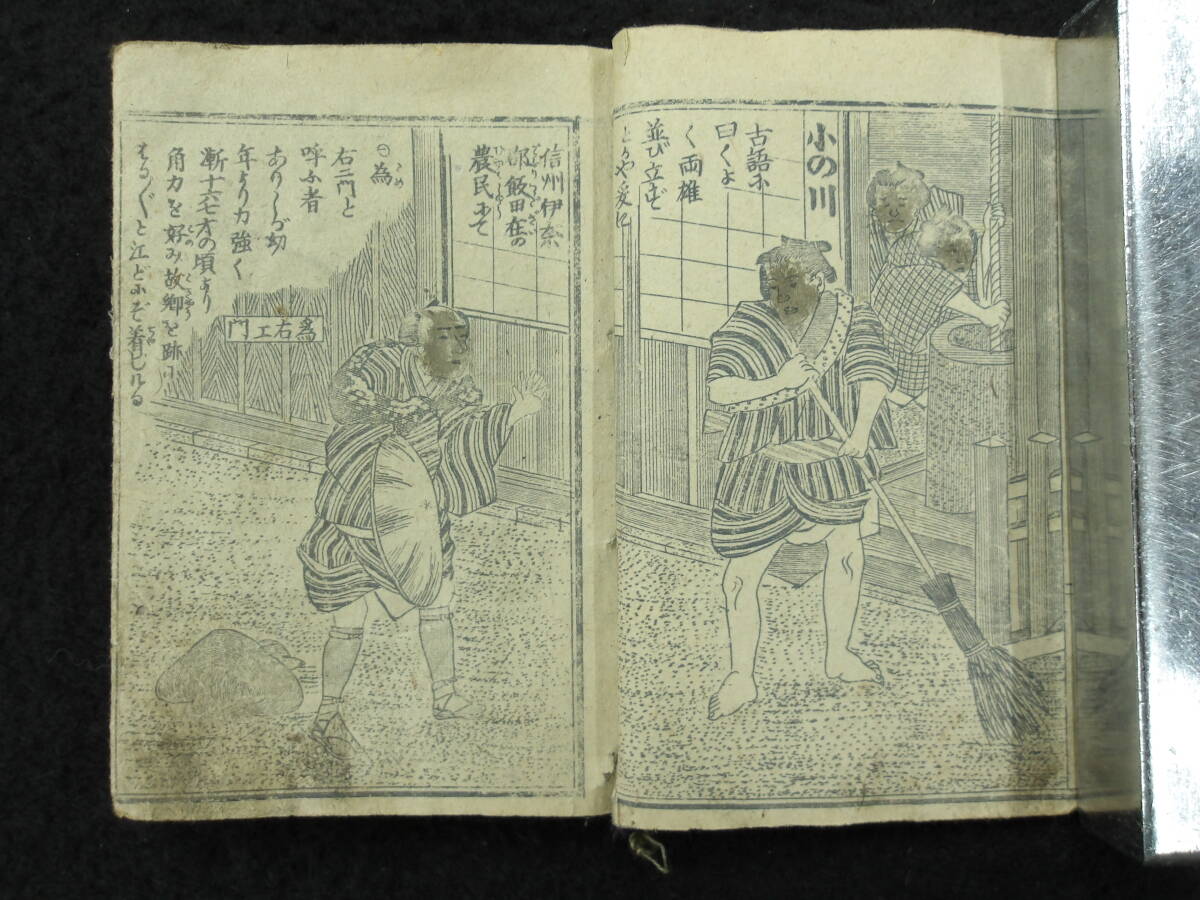 小の川
古語に
曰くよ
く両雄
並び立ず
とかや爰に
信州伊奈
郡飯田在の
農民にて
為
右エ門と
呼ふ者
ありしが幼
年より力強く
漸十六七才の頃より
角力を好み故郷を跡に
はる〲と江どにぞ着しける
為右エ門